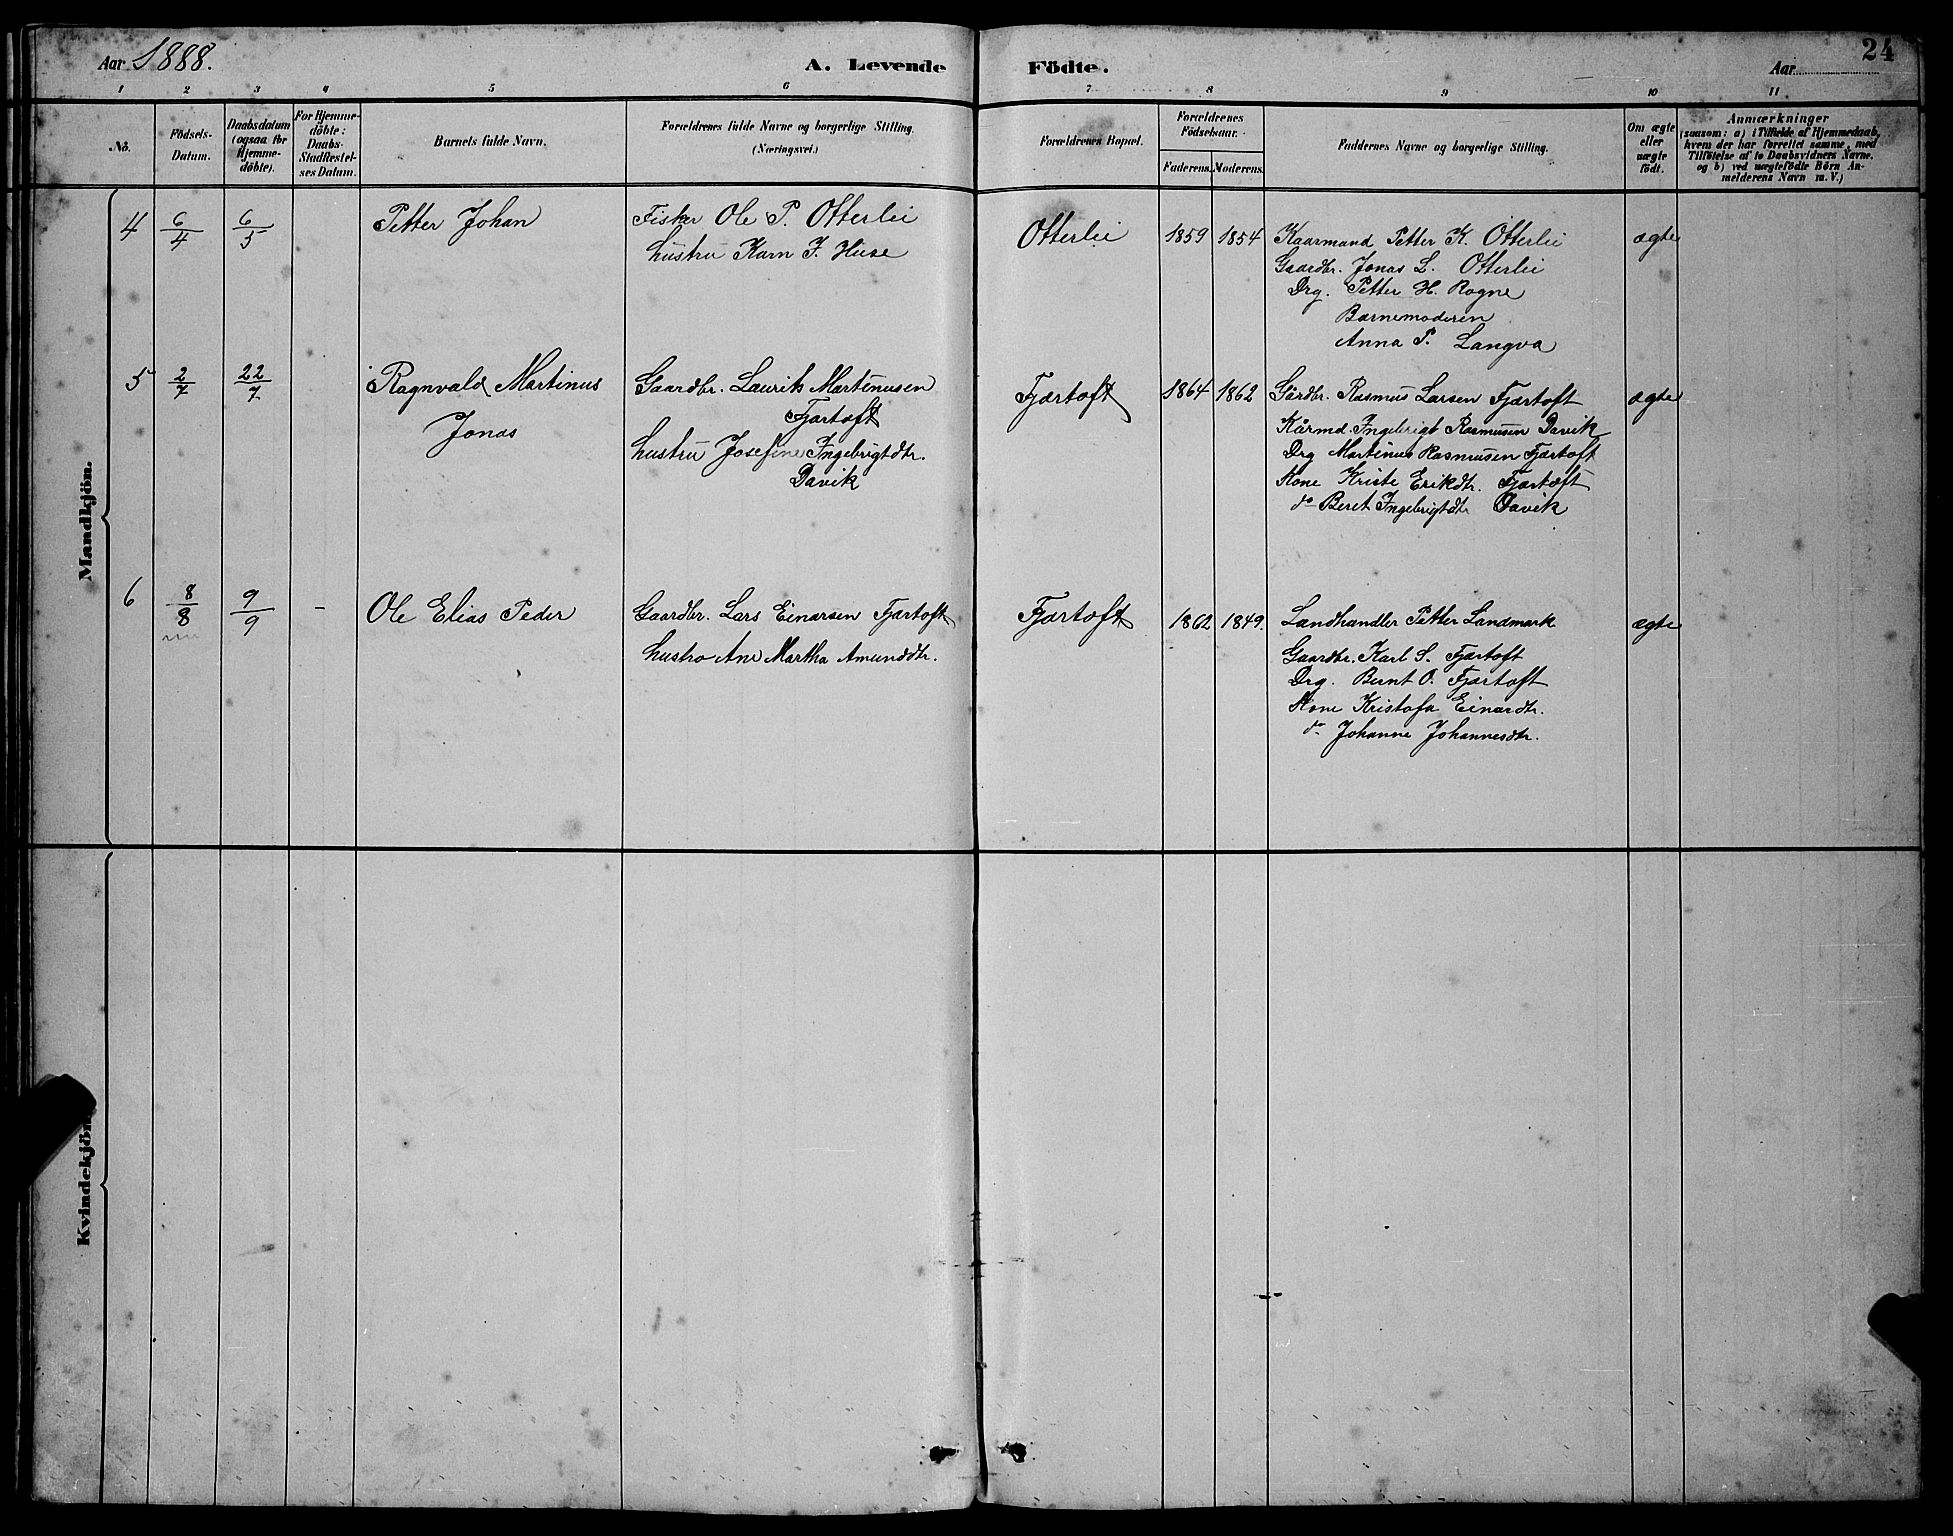 Aar 1888.
A. Levende Födte.
Aar
24
1 2 3 4 5 6 7 8 9 10 11
No.
Födsels-
Datum.
Daabsdatum
(ogsaa for
Hjemme-
döbte).
For Hjemme-
döbte:
Daabs-
Stadfæstel-
ses Datum.
Barnets fulde Navn.
Forældrenes fulde Navne og borgerlige Stilling.
(Næringsvei.)
Forældrenes Bopæl.
Forældrenes
Födselsaar.
Faderens. Moderens.
Faddernes Navne og borgerlige Stilling.
Om ægte
eller
uægte
födt.
Anmærkninger
(saasom: a) i Tilfælde af Hjemmedaab,
hvem der har forrettet samme, med
Tilföielse af to Daabsvidners Navne,
og b) ved uægtefödte Börn An-
melderens Navn m. V.)
Mandkjön.
4 6/4 6/5 Petter Johan
Fisker Ole P. Otterlei
hustru Karn J. Huse
Otterlei 1859 1854
Kaarmand Petter K. Otterlei
Gaardbr. Jonas L. Otterlei
Drg. Petter H. Rogne
Barnemoderen
Anna P. Langva
ægte
5 2/7 22/7 Ragnvald Martinus
Jonas
Gaardbr. Laurik Martinusen
Fjærtoft
hustru Josefine Ingebrigtdtr.
Davik
Fjærtoft 1864 1862
Gårdbr. Rasmus Larsen Fjærtoft
Kårmd. Ingebrigt Rasmusen Davik
Drg Martinus Rasmusen Fjærtoft
Kone Kriste Erikdtr. Fjærtoft
do Beret Ingebrigtdtr Davik
ægte
6 8/8 9/9 - Ole Elias Peder
Gaardbr. Lars Einarsen Fjærtoft
hustro Ane Martha Amunddtr.
Fjærtoft 1862 1849.
Landhandler Petter Landmark
Gaardbr. Karl S. Fjærtoft
Drg. Bernt O. Fjærtoft
Kone Kristofa Einardtr.
do Johanne Johannesdtr.
ægte
Kvindekjön.